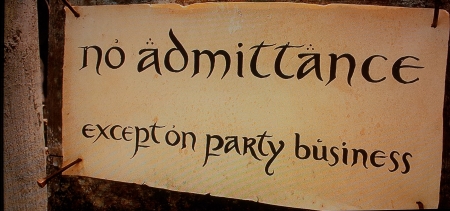 no admittance
except on party business